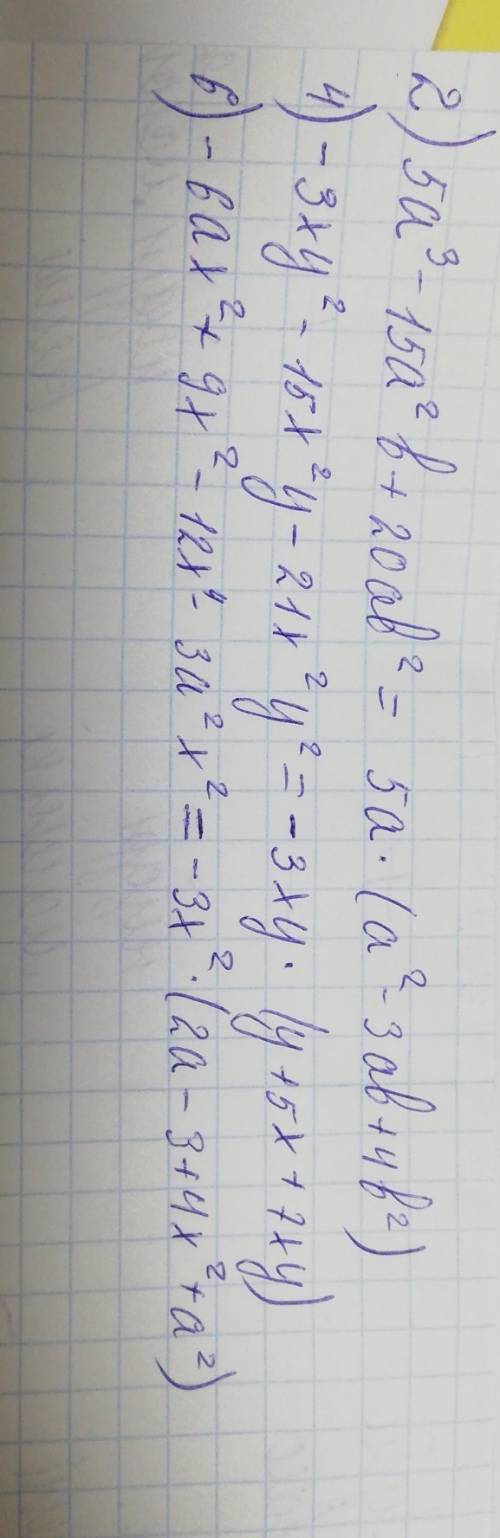 2) 5a³ - 15a²b + 20ab² = 5a · (a² - 3ab + 4b²)
4) - 3xy² - 15x²y - 21x²y² = - 3xy · (y + 5x + 7xy)
6) - 6ax² + 9x² - 12x⁴ - 3a²x² = - 3x² · (2a - 3 + 4x² + a²)